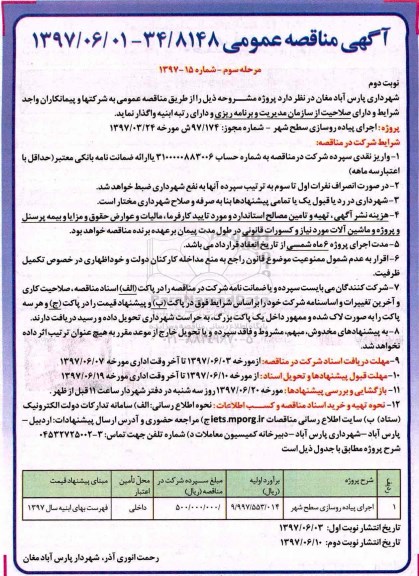 آگهی مناقصه عمومی ۳۴/۸۱۴۸-۱۳۹۷/۰۶/۰۱
مرحله سوم - شماره ۱۵-۱۳۹۷
نوبت دوم
شهرداری پارس آباد مغان در نظر دارد پروژه مشروحه ذیل را از طریق مناقصه عمومی به شرکتها و پیمانکاران واجد
شرایط و دارای صلاحیت از سازمان مدیریت و برنامه ریزی و دارای رتبه ابنیه واگذار نماید.
پروژه: اجرای پیاده روسازی سطح شهر - شماره مجوز: ۹۷/۱۷۴ش مورخه ۱۳۹۷/۰۳/۲۴
شرایط شرکت در مناقصه:
۱- واریز نقدی سپرده شرکت در مناقصه به شماره حساب ۳۱۰۰۰۰۰۸۸۳۰۰۶ یا ارائه ضمانت نامه بانکی معتبر (حداقل با
اعتبار سه ماهه)
۲- در صورت انصراف نفرات اول تا سوم به ترتیب سپرده آنها به نفع شهرداری ضبط خواهد شد.
۳- شهرداری در رد یا قبول یک یا تمامی پیشنهادها بنا به صرفه و صلاح شهرداری مختار است.
۴- هزینه نشر آگهی، تهیه و تامین مصالح استاندارد و مورد تایید کارفرما، مالیات و عوارض حقوق و مزایا و بیمه پرسنل
و پروژه و ماشین آلات مورد نیاز و کسورات قانونی در طول مدت پیمان بر عهده برنده مناقصه خواهد بود.
۵- مدت اجرای پروژه ۶ ماه شمسی از تاریخ انعقاد قرارداد می باشد.
۶- اقرار به عدم شمول ممنوعیت موضوع قانون راجع به منع مداخله کارکنان دولت و خوداظهاری در خصوص تکمیل
ظرفیت.
۷- شرکت کنندگان می بایست سپرده و یا ضمانت نامه شرکت در مناقصه را در پاکت (الف) اسناد مناقصه، صلاحیت کاری
و آخرین تغییرات و اساسنامه شرکت خود را بر اساس شرایط فوق در پاکت (ب) و پیشنهاد قیمت را در پاکت (ج) و هر سه
پاکت را به صورت لاک شده و ممهور داخل یک پاکت بزرگ، به حراست شهرداری تحویل داده و رسید دریافت دارند.
۸- به پیشنهادهای مخدوش، مبهم، مشروط و فاقد سپرده و یا تحویل خارج از موعد مقرر به هیچ عنوان ترتیب اثر داده
نخواهد شد.
۹- مهلت دریافت اسناد شرکت در مناقصه: از مورخه ۱۳۹۷/۰۶/۰۳ تا آخر وقت اداری مورخه ۱۳۹۷/۰۶/۰۷
۱۰- مهلت قبول پیشنهادها و تحویل اسناد: از مورخه ۱۳۹۷/۰۶/۱۰ تا آخر وقت اداری مورخه ۱۳۹۷/۰۶/۱۹
۱۱- بازگشایی و بررسی پیشنهادها: مورخه ۱۳۹۷/۰۶/۲۰ روز سه شنبه در دفتر شهردار ساعت ۱۱ قبل از ظهر.
۱۲- نحوه تهیه و خرید اسناد مناقصه و کسب اطلاعات: نحوه اطلاع رسانی: الف) سامانه تدارکات دولت الکترونیک
(ستاد) ب) سایت اطلاع رسانی مناقصات iets.mporg.ir ج) مراجعه حضوری و آدرس ارسال پیشنهادات: اردبیل -
پارس آباد - شهرداری پارس آباد - دبیرخانه کمیسیون معاملات د) شماره تلفن جهت تماس: ۳-۰۴۵۳۲۷۲۵۰۰۲
شرح پروژه مطابق با جدول ذیل است
ردیف شرح پروژه برآورد اولیه (ریال) مبلغ سپرده شرکت در مناقصه (ریال) محل تأمین اعتبار مبنای پیشنهاد قیمت
۱ اجرای پیاده روسازی سطح شهر ۹/۹۹۷/۵۵۳/۰۱۴ ۵۰۰/۰۰۰/۰۰۰/ داخلی فهرست بهای ابنیه سال ۱۳۹۷
تاریخ انتشار نوبت اول: ۱۳۹۷/۰۶/۰۳
تاریخ انتشار نوبت دوم: ۱۳۹۷/۰۶/۱۰
رحمت انوری آذر، شهردار پارس آباد مغان